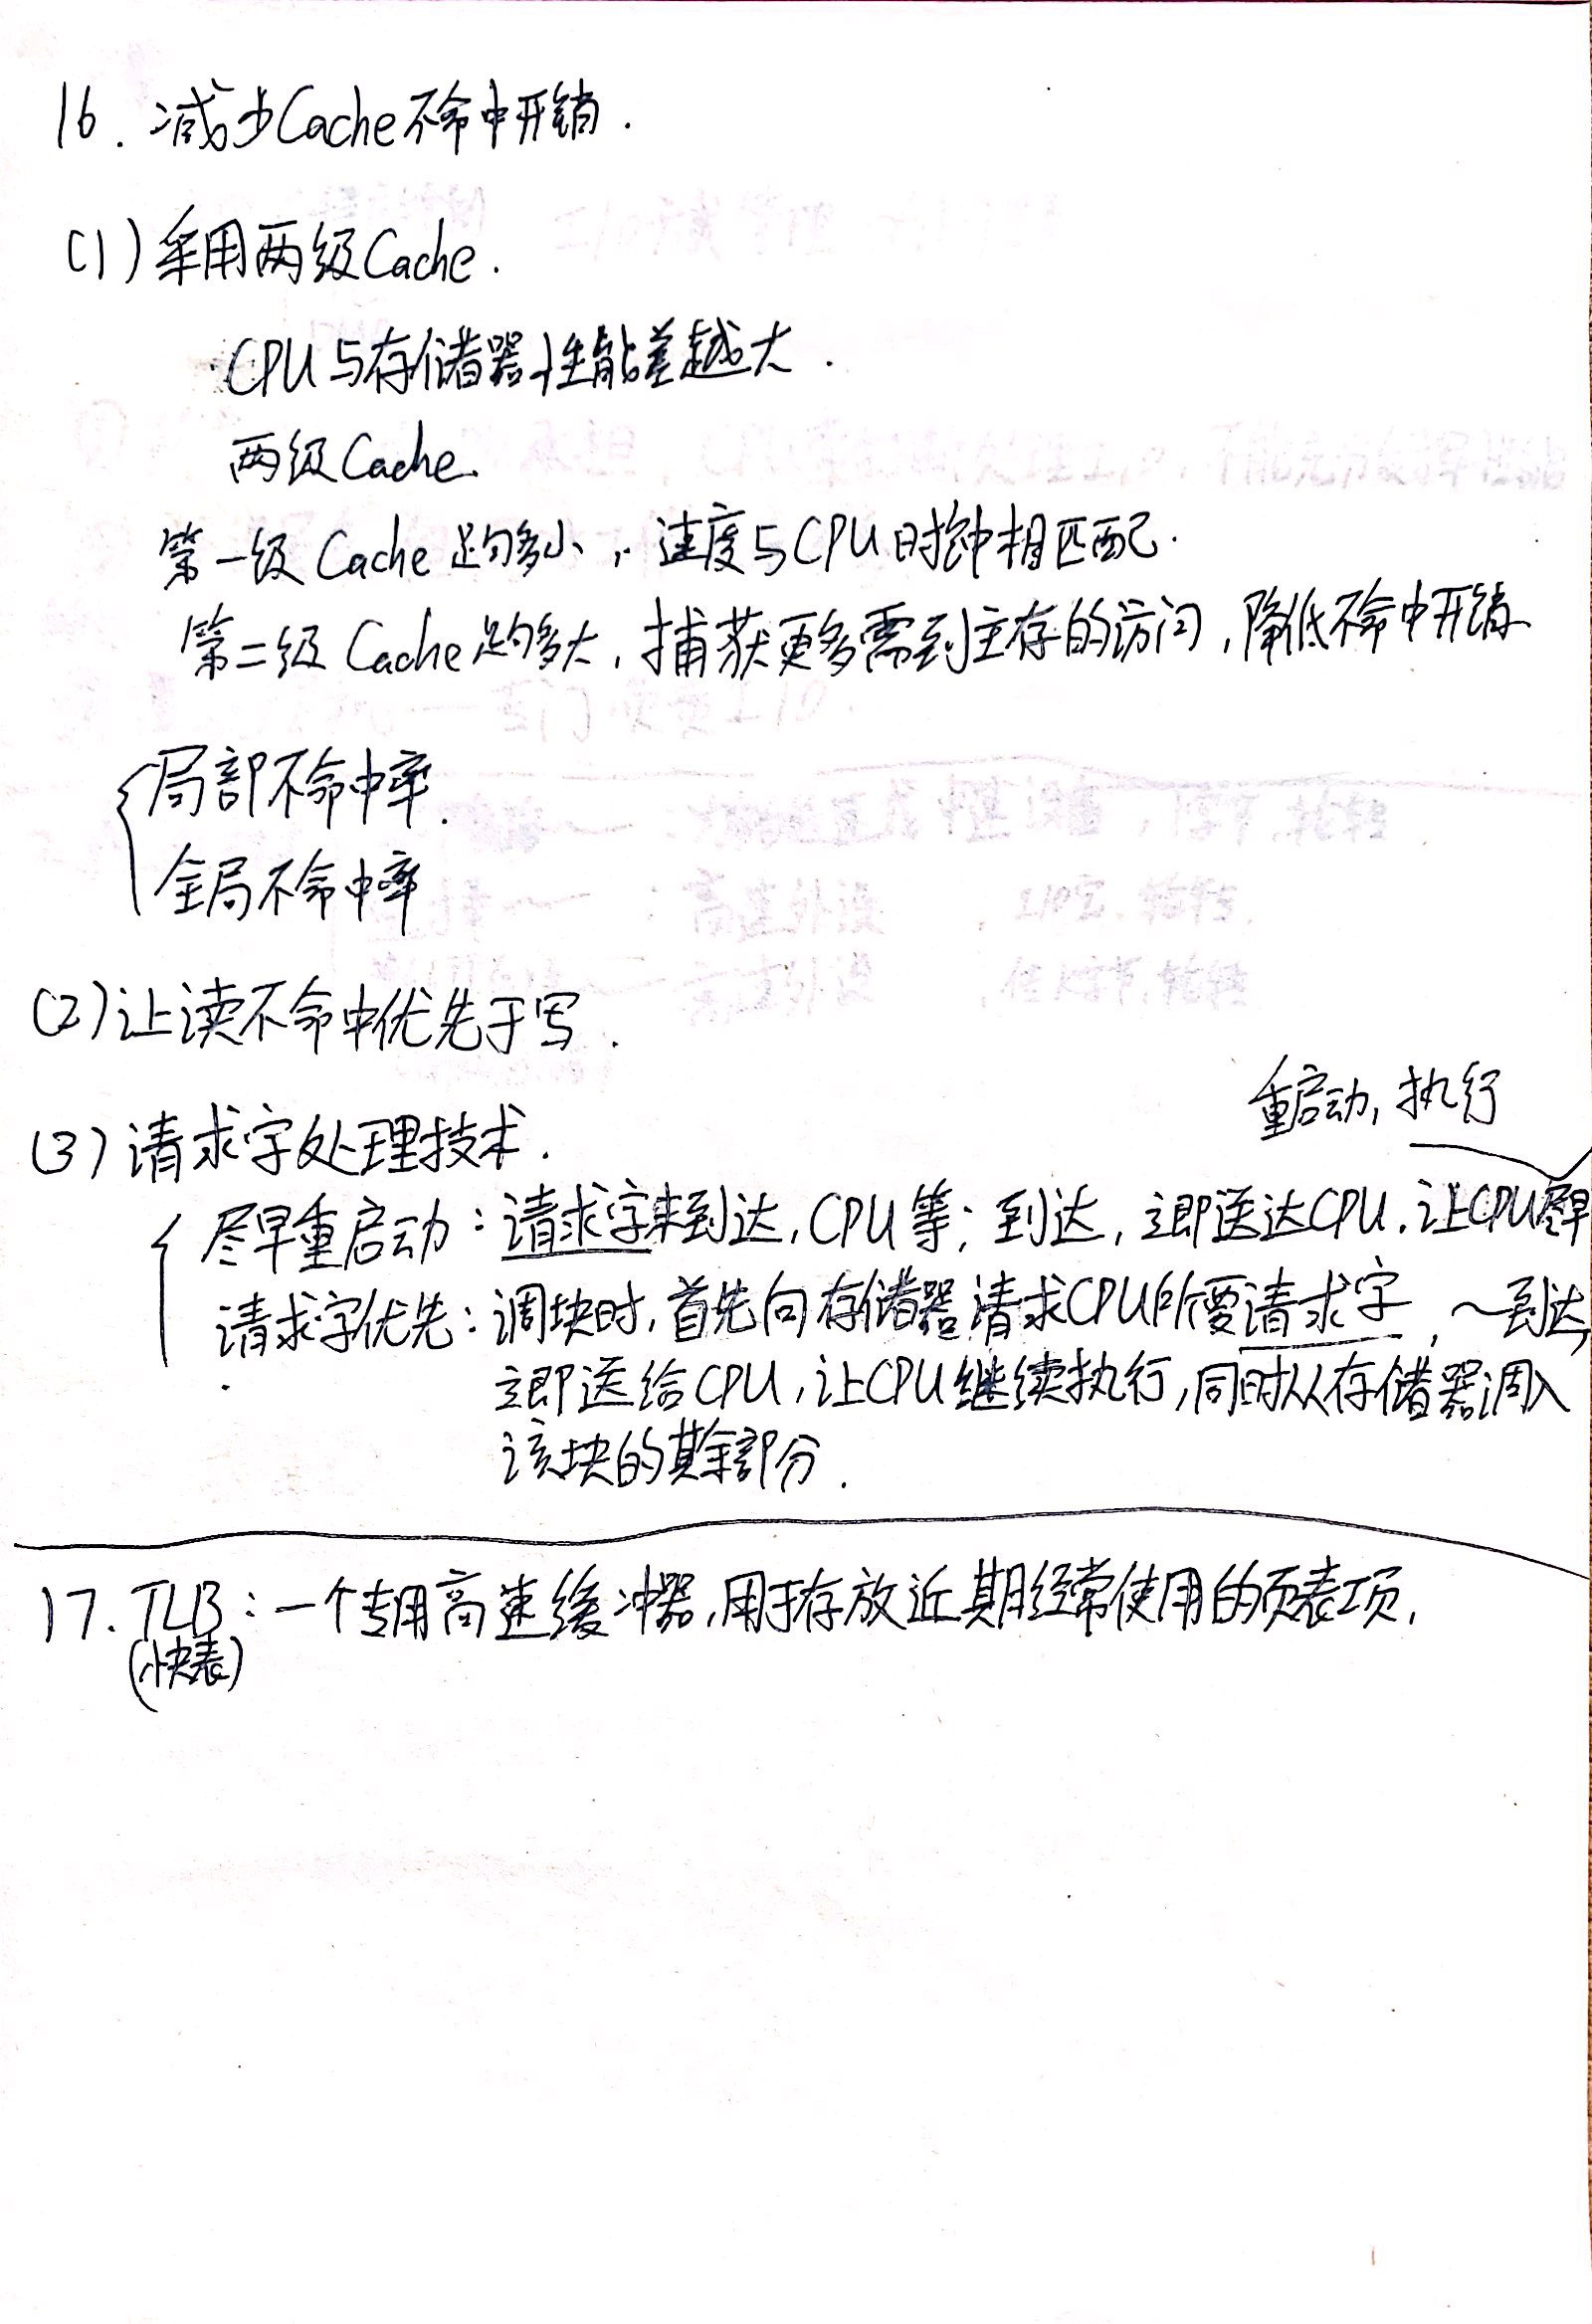 16. 减少Cache不命中开销.
(1) 采用两级Cache.
CPU与存储器性能差越大.
两级Cache
第一级Cache足够小, 速度与CPU时钟相匹配.
第二级Cache足够大, 捕获更多需到主存的访问, 降低不命中开销
局部不命中率.
全局不命中率
(2) 让读不命中优先于写.
重启动, 执行
(3) 请求字处理技术.
尽早重启动: 请求字未到达, CPU等; 到达, 立即送达CPU. 让CPU尽早
请求字优先: 调块时, 首先向存储器请求CPU所要请求字, ~到达,
立即送给CPU, 让CPU继续执行, 同时从存储器调入
该块的其余部分.
17. TLB: 一个专用高速缓冲器, 用于存放近期经常使用的页表项,
(快表)